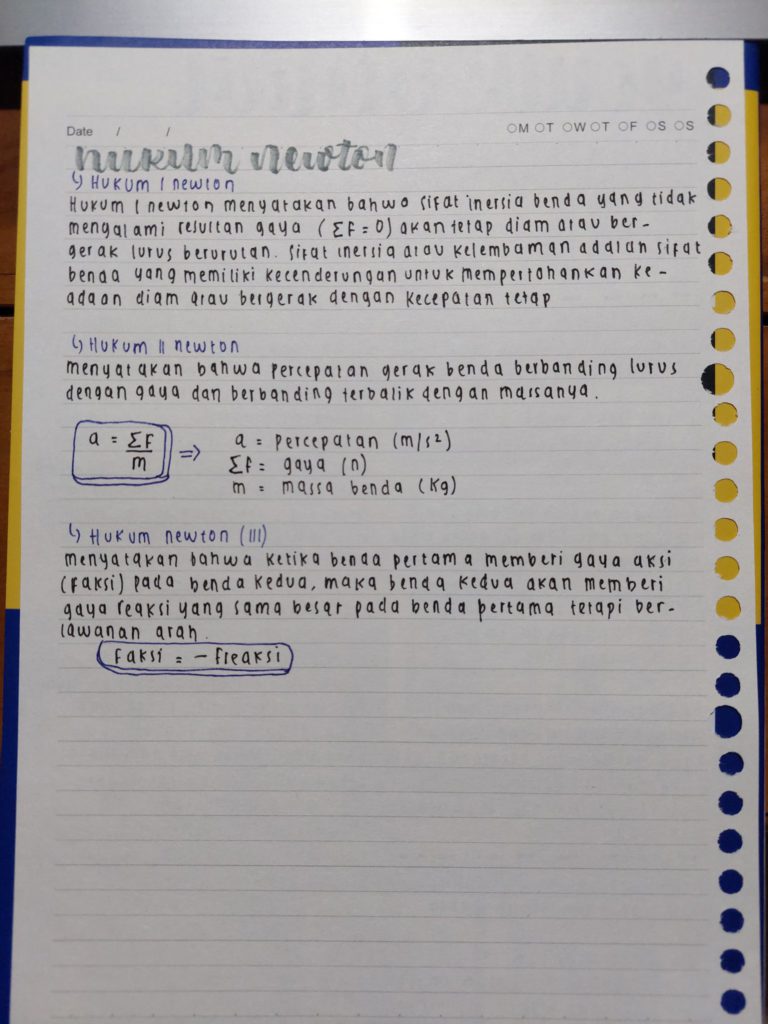 Date / /
OM OT OW OT OF OS OS
Hukum Newton
↳ Hukum I newton
Hukum I newton menyatakan bahwa sifat inersia benda yang tidak
mengalami resultan gaya (ΣF = 0) akan tetap diam atau ber-
gerak lurus berurutan. Sifat inersia atau kelembaman adalah sifat
benda yang memiliki kecenderungan untuk mempertahankan ke-
adaan diam atau bergerak dengan kecepatan tetap
↳ Hukum II newton
menyatakan bahwa percepatan gerak benda berbanding lurus
dengan gaya dan berbanding terbalik dengan massanya.
a = ΣF/m ⇒ a = percepatan (m/s²)
ΣF = gaya (n)
m = massa benda (kg)
↳ Hukum newton (III)
menyatakan bahwa ketika benda pertama memberi gaya aksi
(Faksi) pada benda kedua, maka benda kedua akan memberi
gaya reaksi yang sama besar pada benda pertama tetapi ber-
lawanan arah.
Faksi = - Freaksi